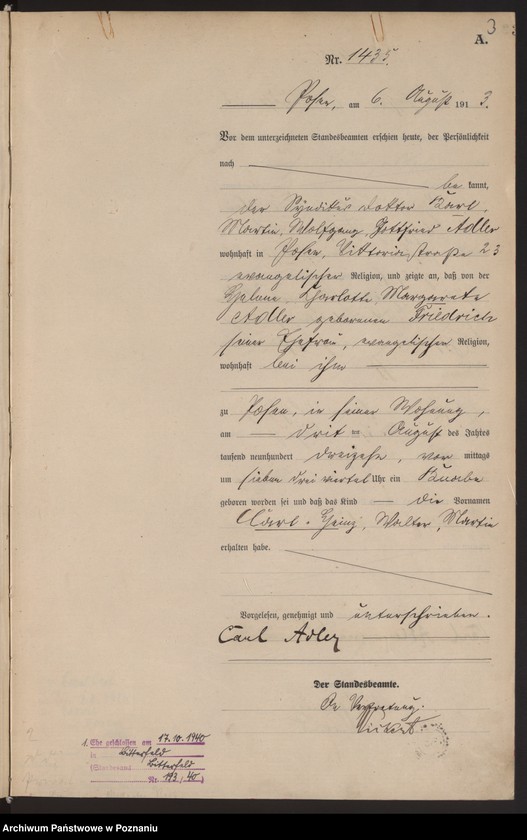 3
A.
Nr. 1435.
Posen, am 6. August 1913.
Vor dem unterzeichneten Standesbeamten erschien heute, der Persönlichkeit
nach
be kannt,
der Syndikus Doktor Karl
Martin, Wolfgang, Gottfried Adler
wohnhaft in Posen, Viktoriastraße 23
evangelischer Religion, und zeigte an, daß von der
Helene, Charlotte, Margarete
Adler geborenen Friedrich
seiner Ehefrau, evangelischer Religion,
wohnhaft bei ihm
zu Posen, in seiner Wohnung,
am dritten August des Jahres
tausend neunhundert dreizehn, vor mittags
um sieben dreiviertel Uhr ein Knabe
geboren worden sei und daß das Kind die Vornamen
Carl-Heinz, Walter, Martin
erhalten habe.
Vorgelesen, genehmigt und unterschrieben.
Carl Adler
Der Standesbeamte.
In Vertretung.
1. Ehe geschlossen am 17.10.1940
in Bitterfeld
(Standesamt Bitterfeld
Nr. 193/40)
Archiwum Państwowe w Poznaniu